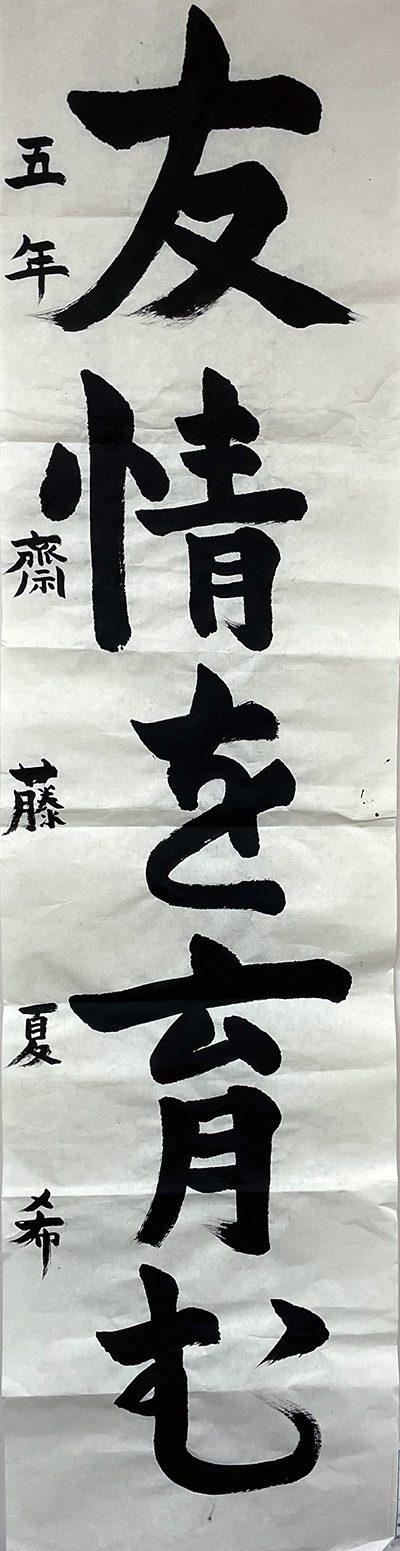 友情を育む
五年 齋藤夏希